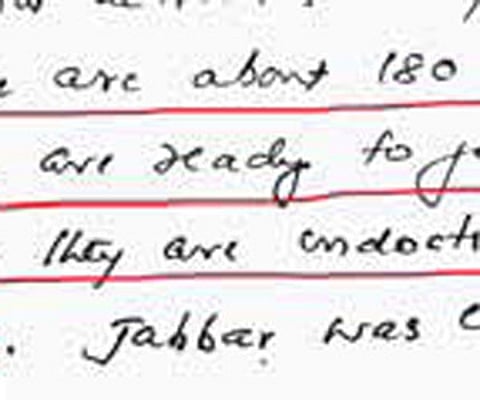 are about 180
are ready to
They are
. Jabbar was